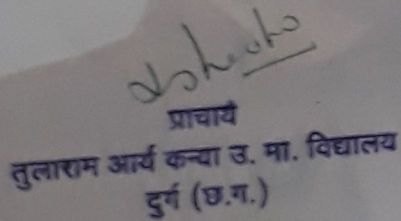 प्राचार्य
तुलाराम आर्य कन्या उ. मा. विद्यालय
दुर्ग (छ.ग.)